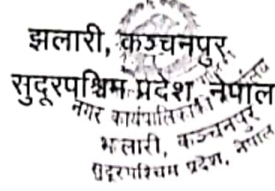 झलारी, कञ्चनपुर
सुदूरपश्चिम प्रदेश, नेपाल
नगर कार्यपालिकाको
झलारी, कञ्चनपुर
सुदूरपश्चिम प्रदेश, नेपाल